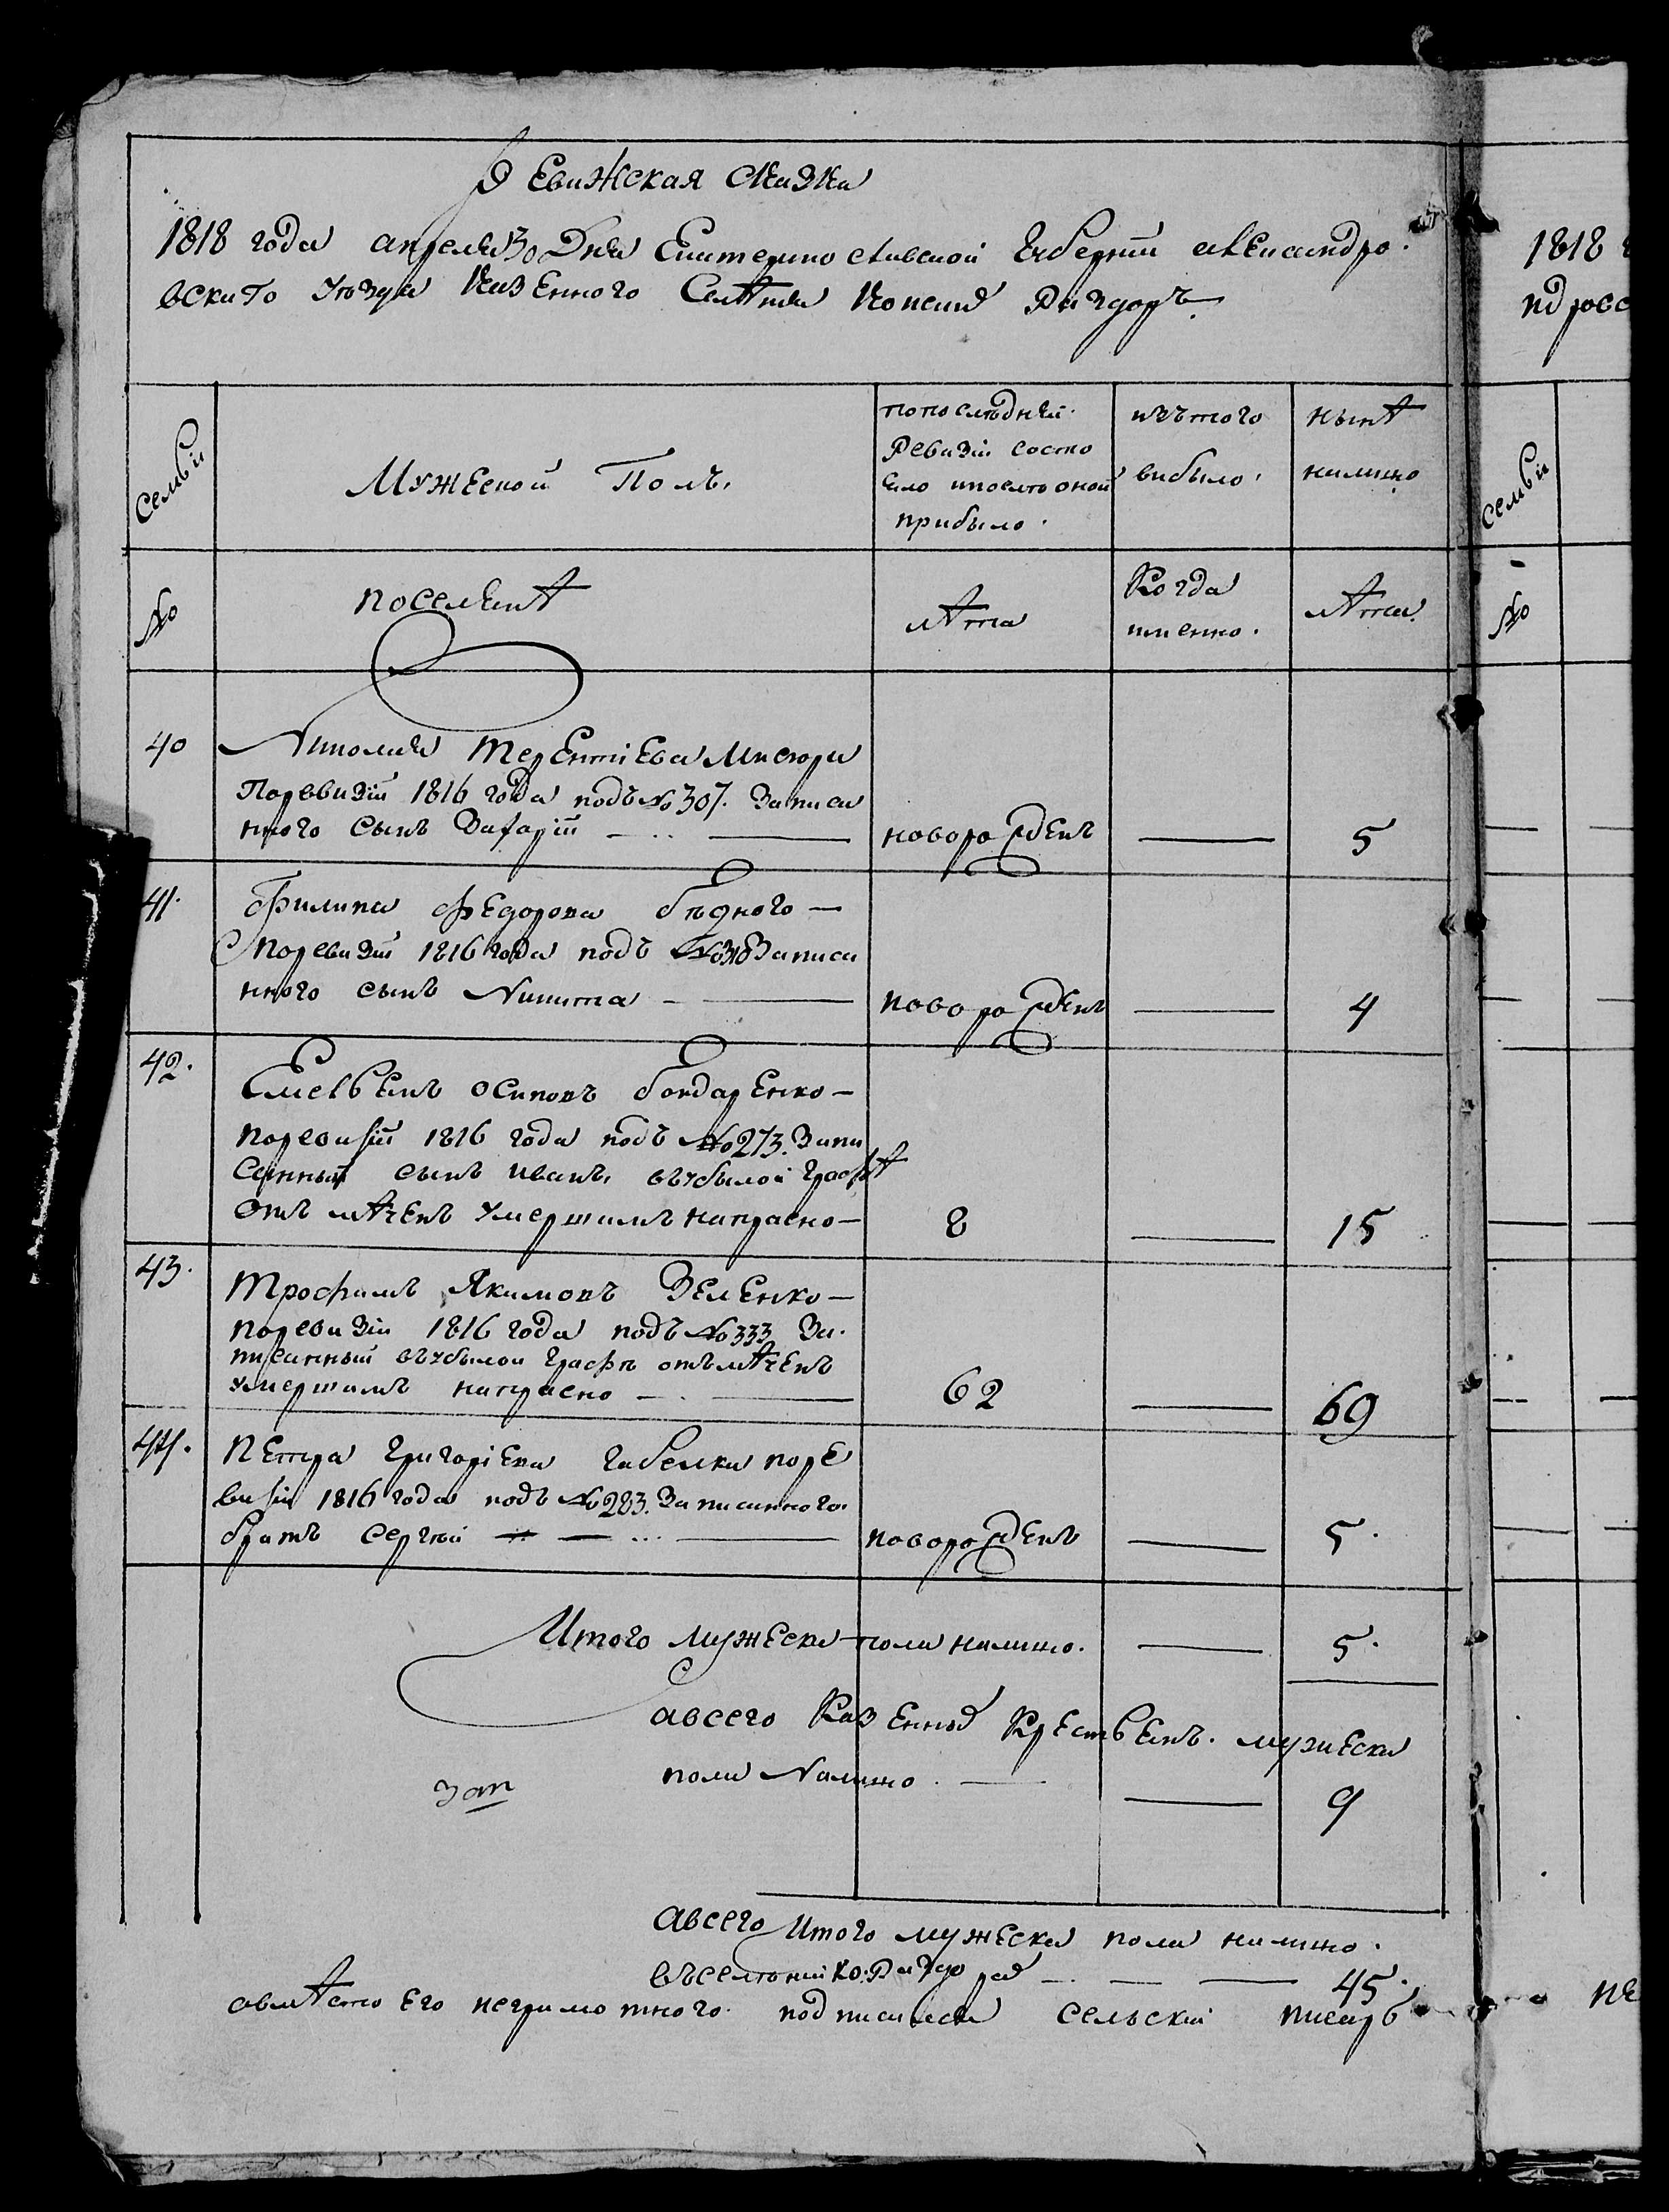 Ревижская сказка
1818 года апреля 30 Дня Екатеринославской Губернии александро
вскаго Уѣзда Казенного Селѣния Копани Раздоръ
Семьи
Мужеской Полъ.
попослѣдней
Ревизiи состо
яло ипослѣ оной
прибыло.
изътого
выбыло.
нынѣ
налицо
семьи
№
поселянѣ
лѣта
Когда
именно.
лѣта.
№
40
Терентiева
Поревизiи 1816 года подъ № 307. Записа
нного сынъ Захарiй
новорожденъ
5
41.
Филипа Федорова бѣдного
поревизiи 1816 года подъ Записа
нного сынъ Никита
новорожденъ
4
42.
Емельянъ осиповъ бондаренко
поревизiи 1816 года подъ № 273. Запи
санный сынъ иванъ, въубылой графѣ
отъмѣченъ умершимъ напрасно
8
15
43.
Трофимъ Якимовъ Зеленко
поревизiи 1816 года подъ № 333 За
писанный въубылои графѣ отъмѣченъ
умершимъ напрасно
62
69
44.
Петра григорiева поре
визiи 1816 года подъ № 283. Записанного
братъ сергѣй
новорожденъ
5.
Итого мужеска пола налицо.
5.
авсего Казенныхъ Крестьянъ. мужеска
пола Налицо
9
авсего Итого мужеска пола налицо.
въселѣнии Ко: Раздорахъ
45.
авмѣсто его неграмотного подписался сельский писарь
1818
ндровс